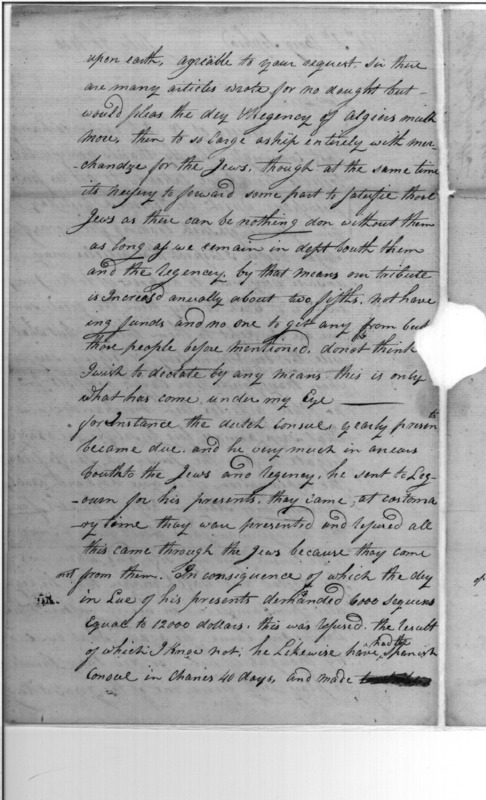 upon earth, agreable to your request. Sir there
are many articles wrote for no dought but
would pleas the dey & Regency of Algiers much
more, then to so large aship entirely with mer-
-chandze for the Jews, though at the same time
its nessery to foward some part to satisfie those
Jews as there can be nothing don without them
as long as we remain in dept bouth them
and the regency. by that means our tribute
is Increasd anually about two fifths. not have
ing funds and no one to git any from but
those people before mentioned. donot think
I wish to dictate by any means this is only
what has come under my Eye
for Instance the dutch consul, yearly presents
became due, and he very much in arears
bouth to the Jews and regency, he sent to Leg-
-ourn for his presents. they came, at costoma
ry time thay ware presented and refused all
this came through the Jews because thay come
not from them. In consiquence of which the dey
in Lue of his presents demanded 6000 sequens
Equal to 12000 dollars. this was refused. the result
of which I know not, he Likewise have had the Spanish
Consul in Chanes 40 days, and made